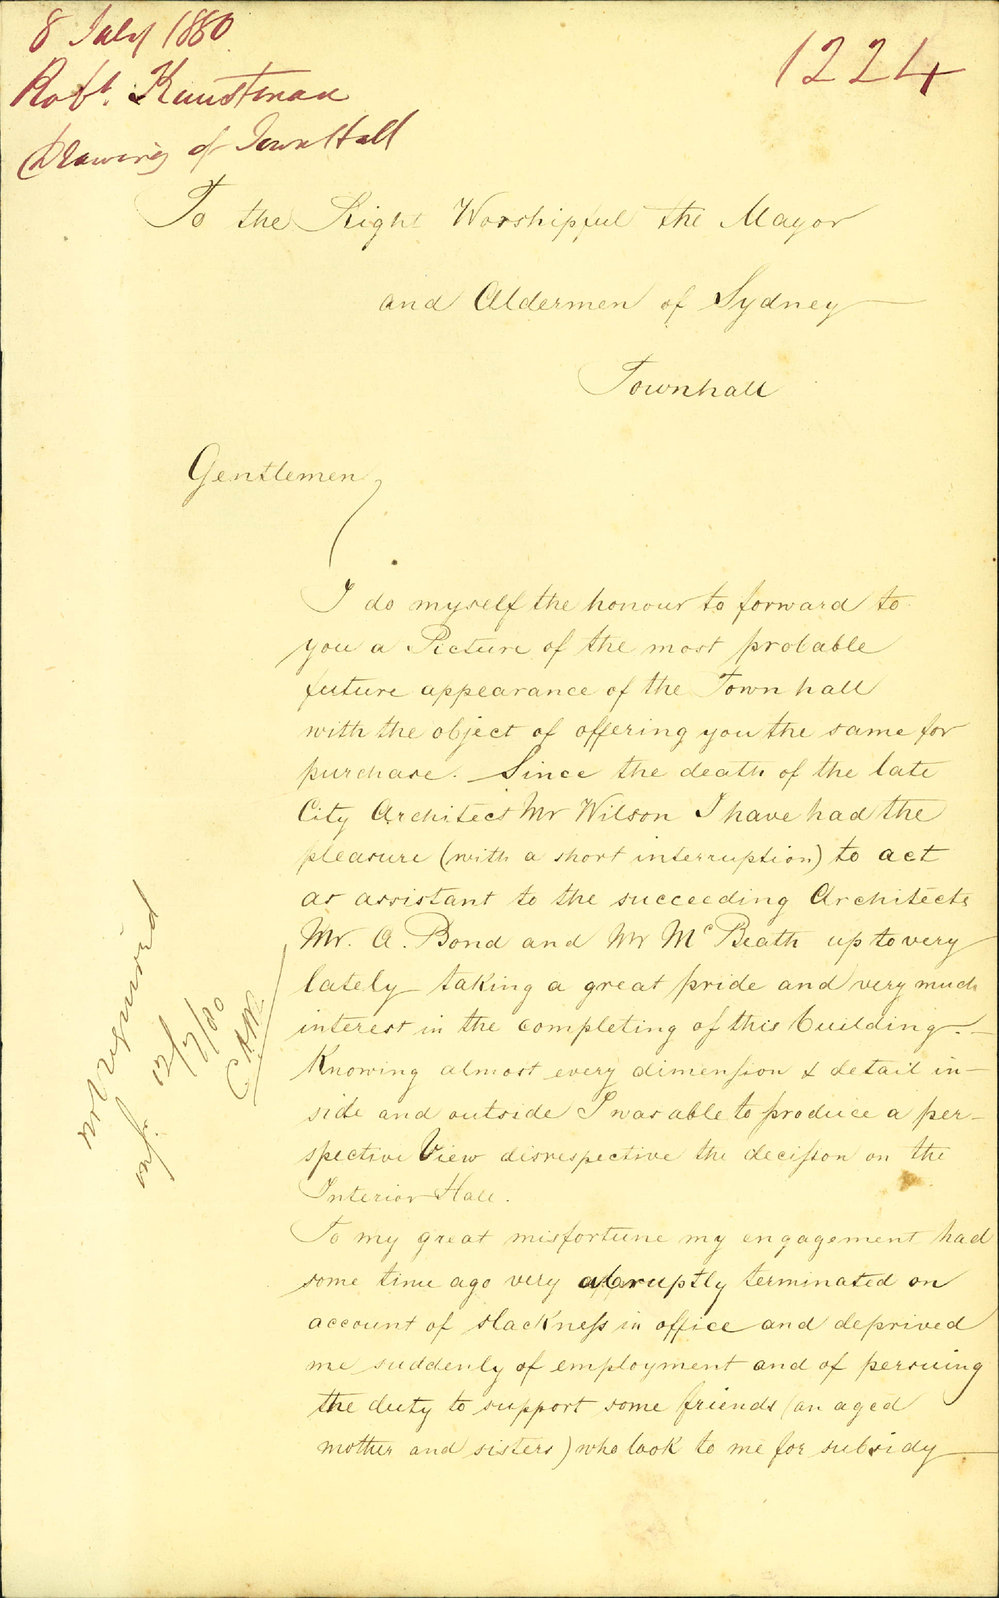 8 July 1880
Robt. Kunstman
Drawing of Town Hall
1224
To the Right Worshipful the Mayor
and Aldermen of Sydney
Townhall
Gentlemen,
I do myself the honour to forward to
you a Picture of the most probable
future appearance of the Town hall
with the object of offering you the same for
purchase. Since the death of the late
City Architect Mr Wilson I have had the
pleasure (with a short interruption) to act
as assistant to the succeeding Architects
Mr. A. Bond and Mr McBeath up to very
lately taking a great pride and very much
interest in the completing of this building.
Knowing almost every dimension & detail in-
side and outside I was able to produce a per-
spective View disrespective the decision on the
Interior Hall.
To my great misfortune my engagement had
some time ago very abruptly terminated on
account of slackness in office and deprived
me suddenly of employment and of persuing
the duty to support some friends (an aged
mother and sisters) who look to me for subsidy
not required
12/7/80